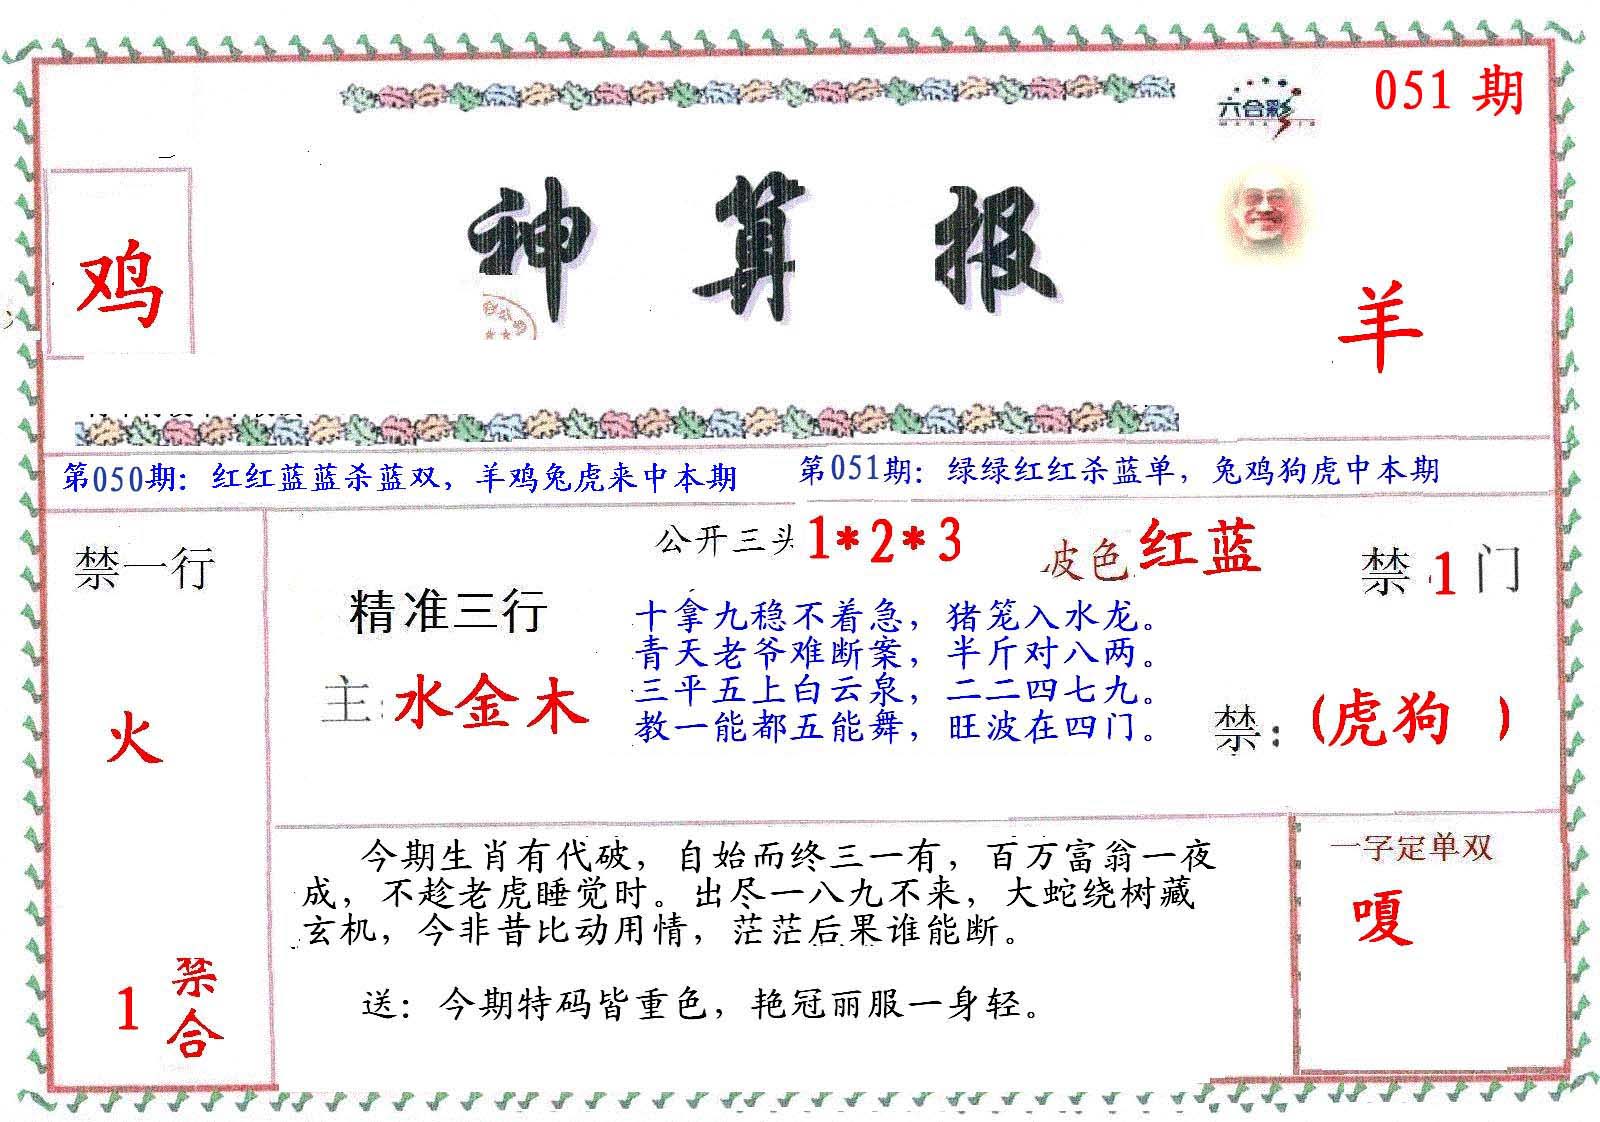 六合彩
051 期
神算报
鸡
羊
第050期：红红蓝蓝杀蓝双，羊鸡兔虎来中本期
第051期：绿绿红红杀蓝单，兔鸡狗虎中本期
禁一行
火
1 禁合
精准三行
主：水金木
公开三头 1*2*3
波色 红蓝
禁 1 门
十拿九稳不着急，猪笼入水龙。
青天老爷难断案，半斤对八两。
三平五上白云泉，二二四七九。
教一能都五能舞，旺波在四门。
禁：(虎狗 )
今期生肖有代破，自始而终三一有，百万富翁一夜
成，不趁老虎睡觉时。出尽一八九不来，大蛇绕树藏
玄机，今非昔比动用情，茫茫后果谁能断。
送：今期特码皆重色，艳冠丽服一身轻。
一字定单双
嗄